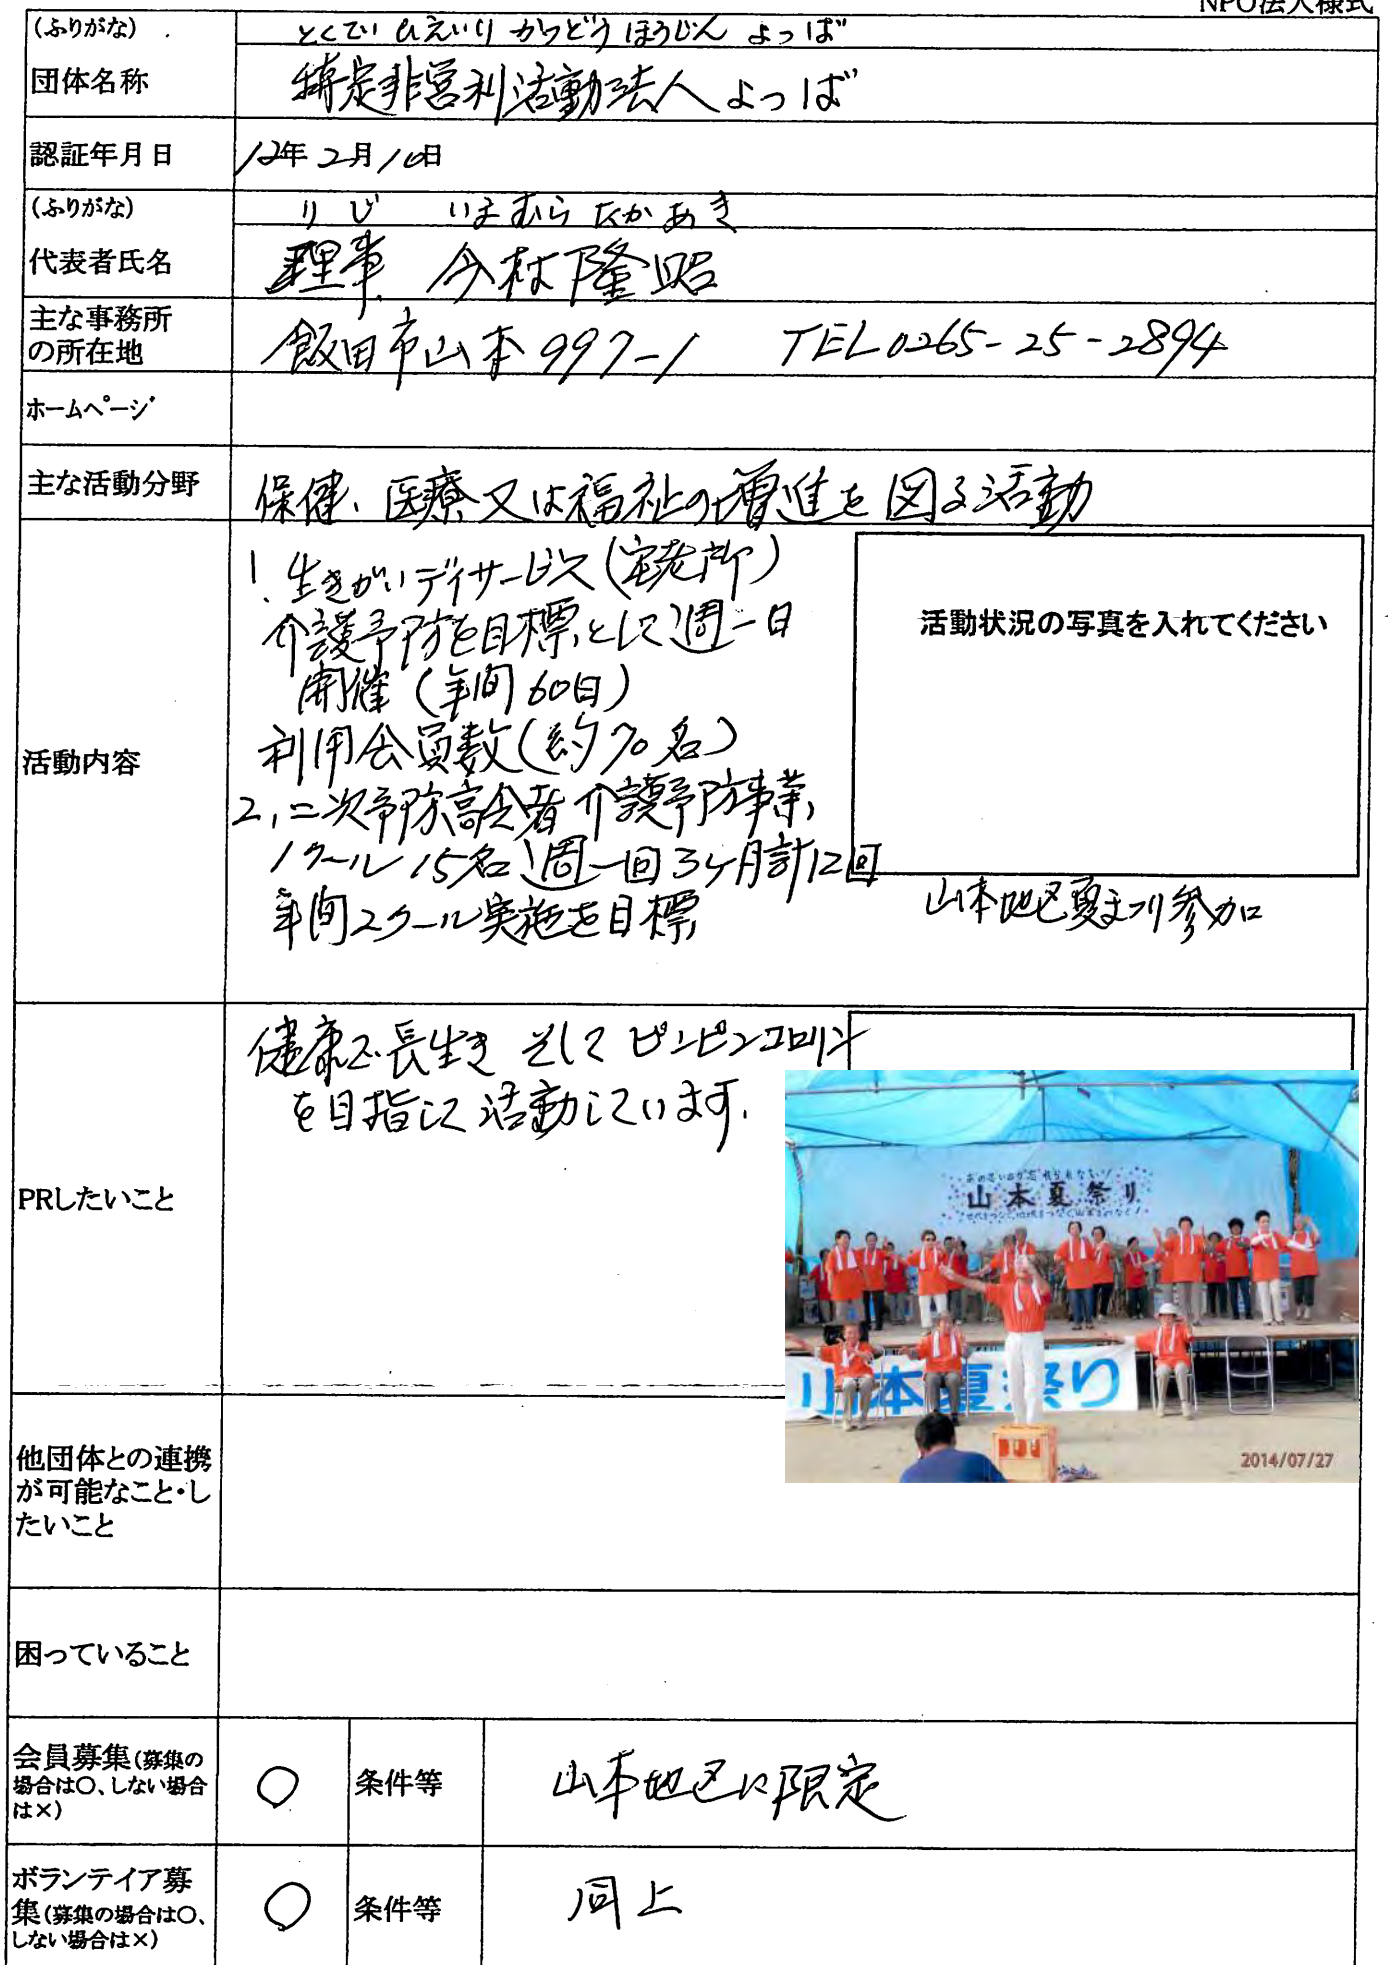 NPO法人様式
(ふりがな) とくてい ひえいり かつどう ほうじん よつば
団体名称 特定非営利活動法人よつば
認証年月日 12年2月10日
(ふりがな) りじ いまむらたかあき
代表者氏名 理事 今村隆昭
主な事務所
の所在地 飯田市山本997-1 TEL0265-25-2894
ホームページ
主な活動分野 保健、医療又は福祉の増進を図る活動
活動内容
1. 生きがいデイサービス(宅老所)
介護予防を目標として週一日
開催(年間60日)
利用会員数(約70名)
2,二次予防高令者介護予防事業、
1クール15名週一回3ヶ月計12回
年間2クール実施を目標
活動状況の写真を入れてください
山本地区夏まつり参加
PRしたいこと
健康で長生き そして ピンピンコロリン
を目指して活動しています.
山本夏祭り
山本夏祭り
2014/07/27
他団体との連携
が可能なこと・し
たいこと
困っていること
会員募集(募集の
場合は○、しない場合
は×) ○ 条件等 山本地区に限定
ボランテイア募
集(募集の場合は○、
しない場合は×) ○ 条件等 同上